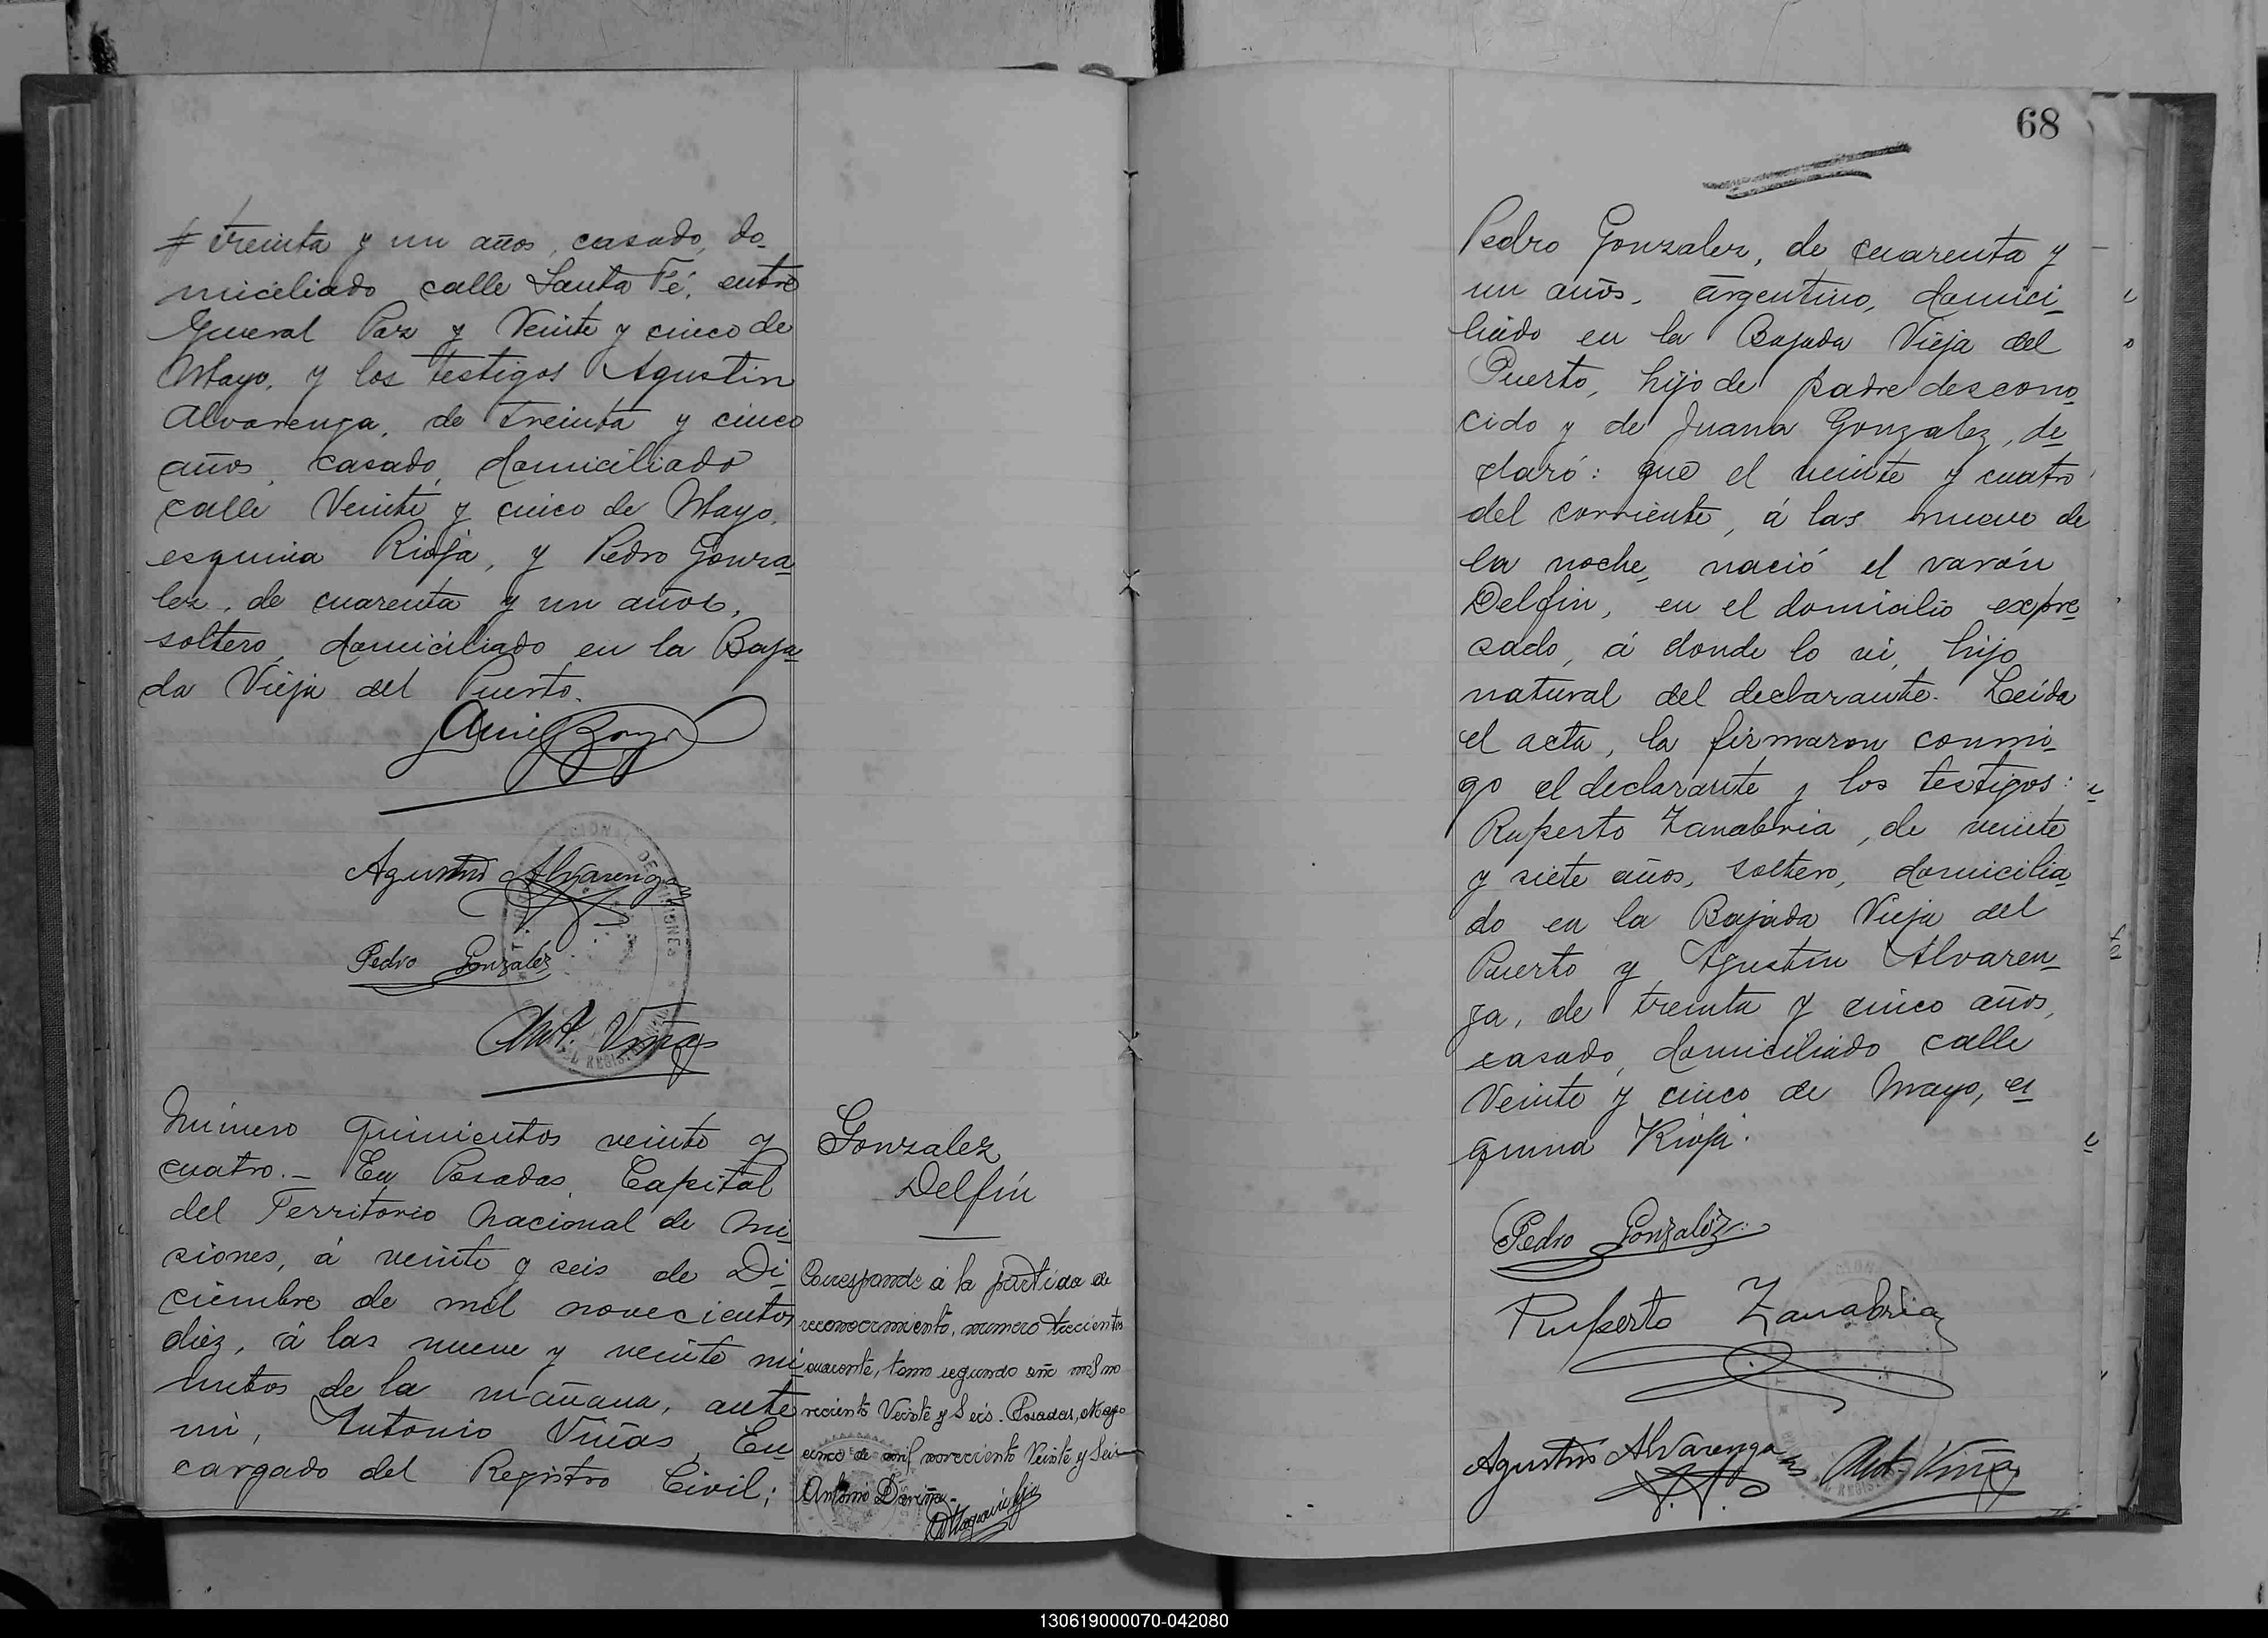 treinta y un años, casado, do-
miciliado calle Santa Fé, entre
General Paz y Veinte y cinco de
Mayo, y los testigos Agustin
Alvarenga, de treinta y cinco
años, casado, domiciliado
calle Veinte y cinco de Mayo,
esquina Rioja, y Pedro Gonza-
lez, de cuarenta y un años,
soltero, domiciliado en la Baja-
da Vieja del Puerto.
Agustin Alvarenga
Pedro Gonzalez
Ant. Viñas
Número quinientos veinte y
cuatro.- En Posadas, Capital
del Territorio Nacional de Mi-
siones, á veinte y seis de Di-
ciembre de mil novecientos
diez, á las nueve y veinte mi-
nutos de la mañana, ante
mi, Antonio Viñas, En-
cargado del Registro Civil;
Gonzalez
Delfín
Corresponde á la partida de
reconocimiento, numero trecientos
cuarenta, tomo segundo año mil no
veciento Veinte y Seis. Posadas, Mayo
cinco de mil noveciento Veinte y Seis
Antonio
68
Pedro Gonzalez, de cuarenta y
un años, argentino, domici-
liado en la Bajada Vieja del
Puerto, hijo de padre descono-
cido y de Juana Gonzalez, de-
claró: que el veinte y cuatro
del corriente, á las nueve de
la noche, nació el varón
Delfin, en el domicilio expre-
sado, á donde lo vi, hijo
natural del declarante. Leida
el acta, la firmaron conmi-
go el declarante y los testigos:
Ruperto Zanabria, de veinte
y siete años, soltero, domicilia-
do en la Bajada Vieja del
Puerto y Agustin Alvaren-
ga, de treinta y cinco años,
casado, domiciliado calle
Veinte y cinco de Mayo, es-
quina Rioja.
Pedro Gonzalez
Ruperto Zanabria
Agustin Alvarenga Ant. Viñas
130619000070-042080